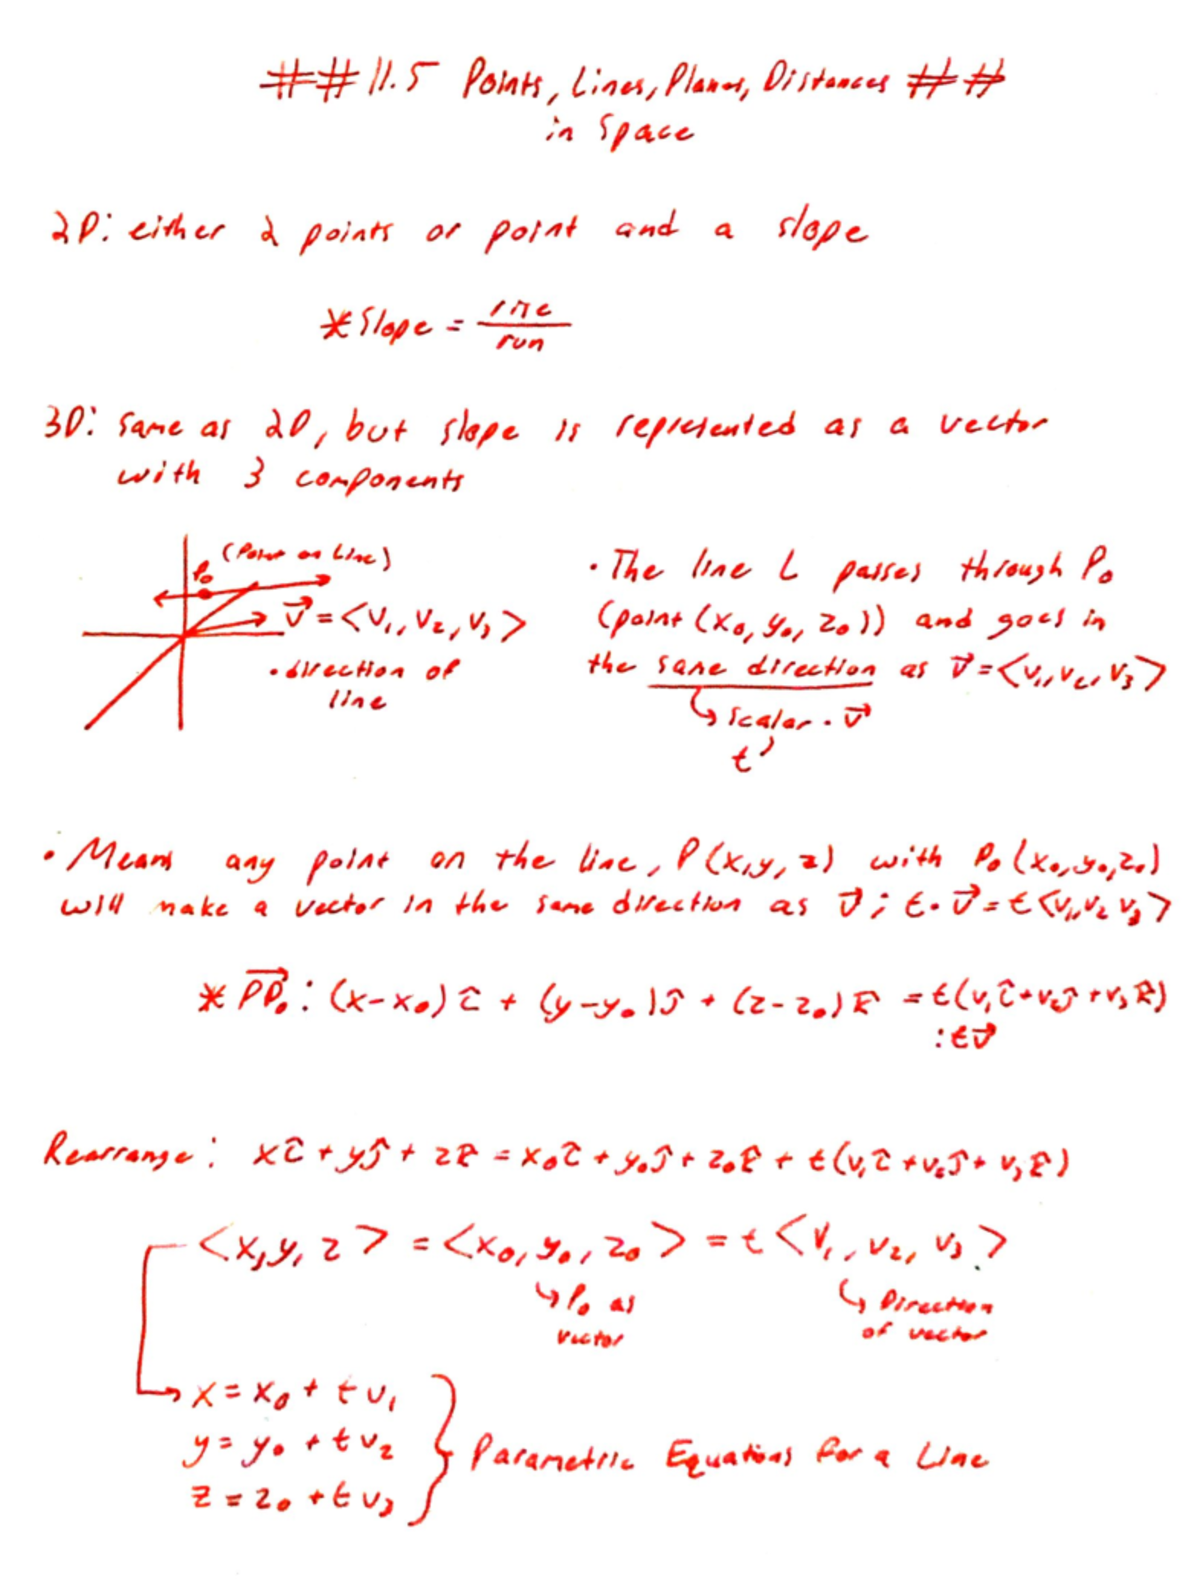 ## 11.5 Points, Lines, Planes, Distances ##
in Space
2D: either 2 points or point and a slope
* Slope = rise/run
3D: same as 2D, but slope is represented as a vector
with 3 components
(Point on Line)
P₀
v⃗ = <v₁, v₂, v₃>
• direction of
line
• The line L passes through P₀
(point (x₀, y₀, z₀)) and goes in
the same direction as v⃗ = <v₁, v₂, v₃>
↳ scalar · v⃗
t
• Means any point on the line, P(x,y,z) with P₀(x₀,y₀,z₀)
will make a vector in the same direction as v⃗; t·v⃗ = t<v₁,v₂ v₃>
* PP₀⃗ : (x-x₀)î + (y-y₀)ĵ + (z-z₀)k̂ = t(v₁î+v₂ĵ+v₃k̂)
: tv⃗
Rearrange: xî + yĵ + zk̂ = x₀î + y₀ĵ + z₀k̂ + t(v₁î + v₂ĵ + v₃k̂)
<x,y,z> = <x₀, y₀, z₀> = t<v₁, v₂, v₃>
↳ P₀ as
vector
↳ Direction
of vector
→ x = x₀ + tv₁
y = y₀ + tv₂
z = z₀ + tv₃
} Parametric Equations for a Line